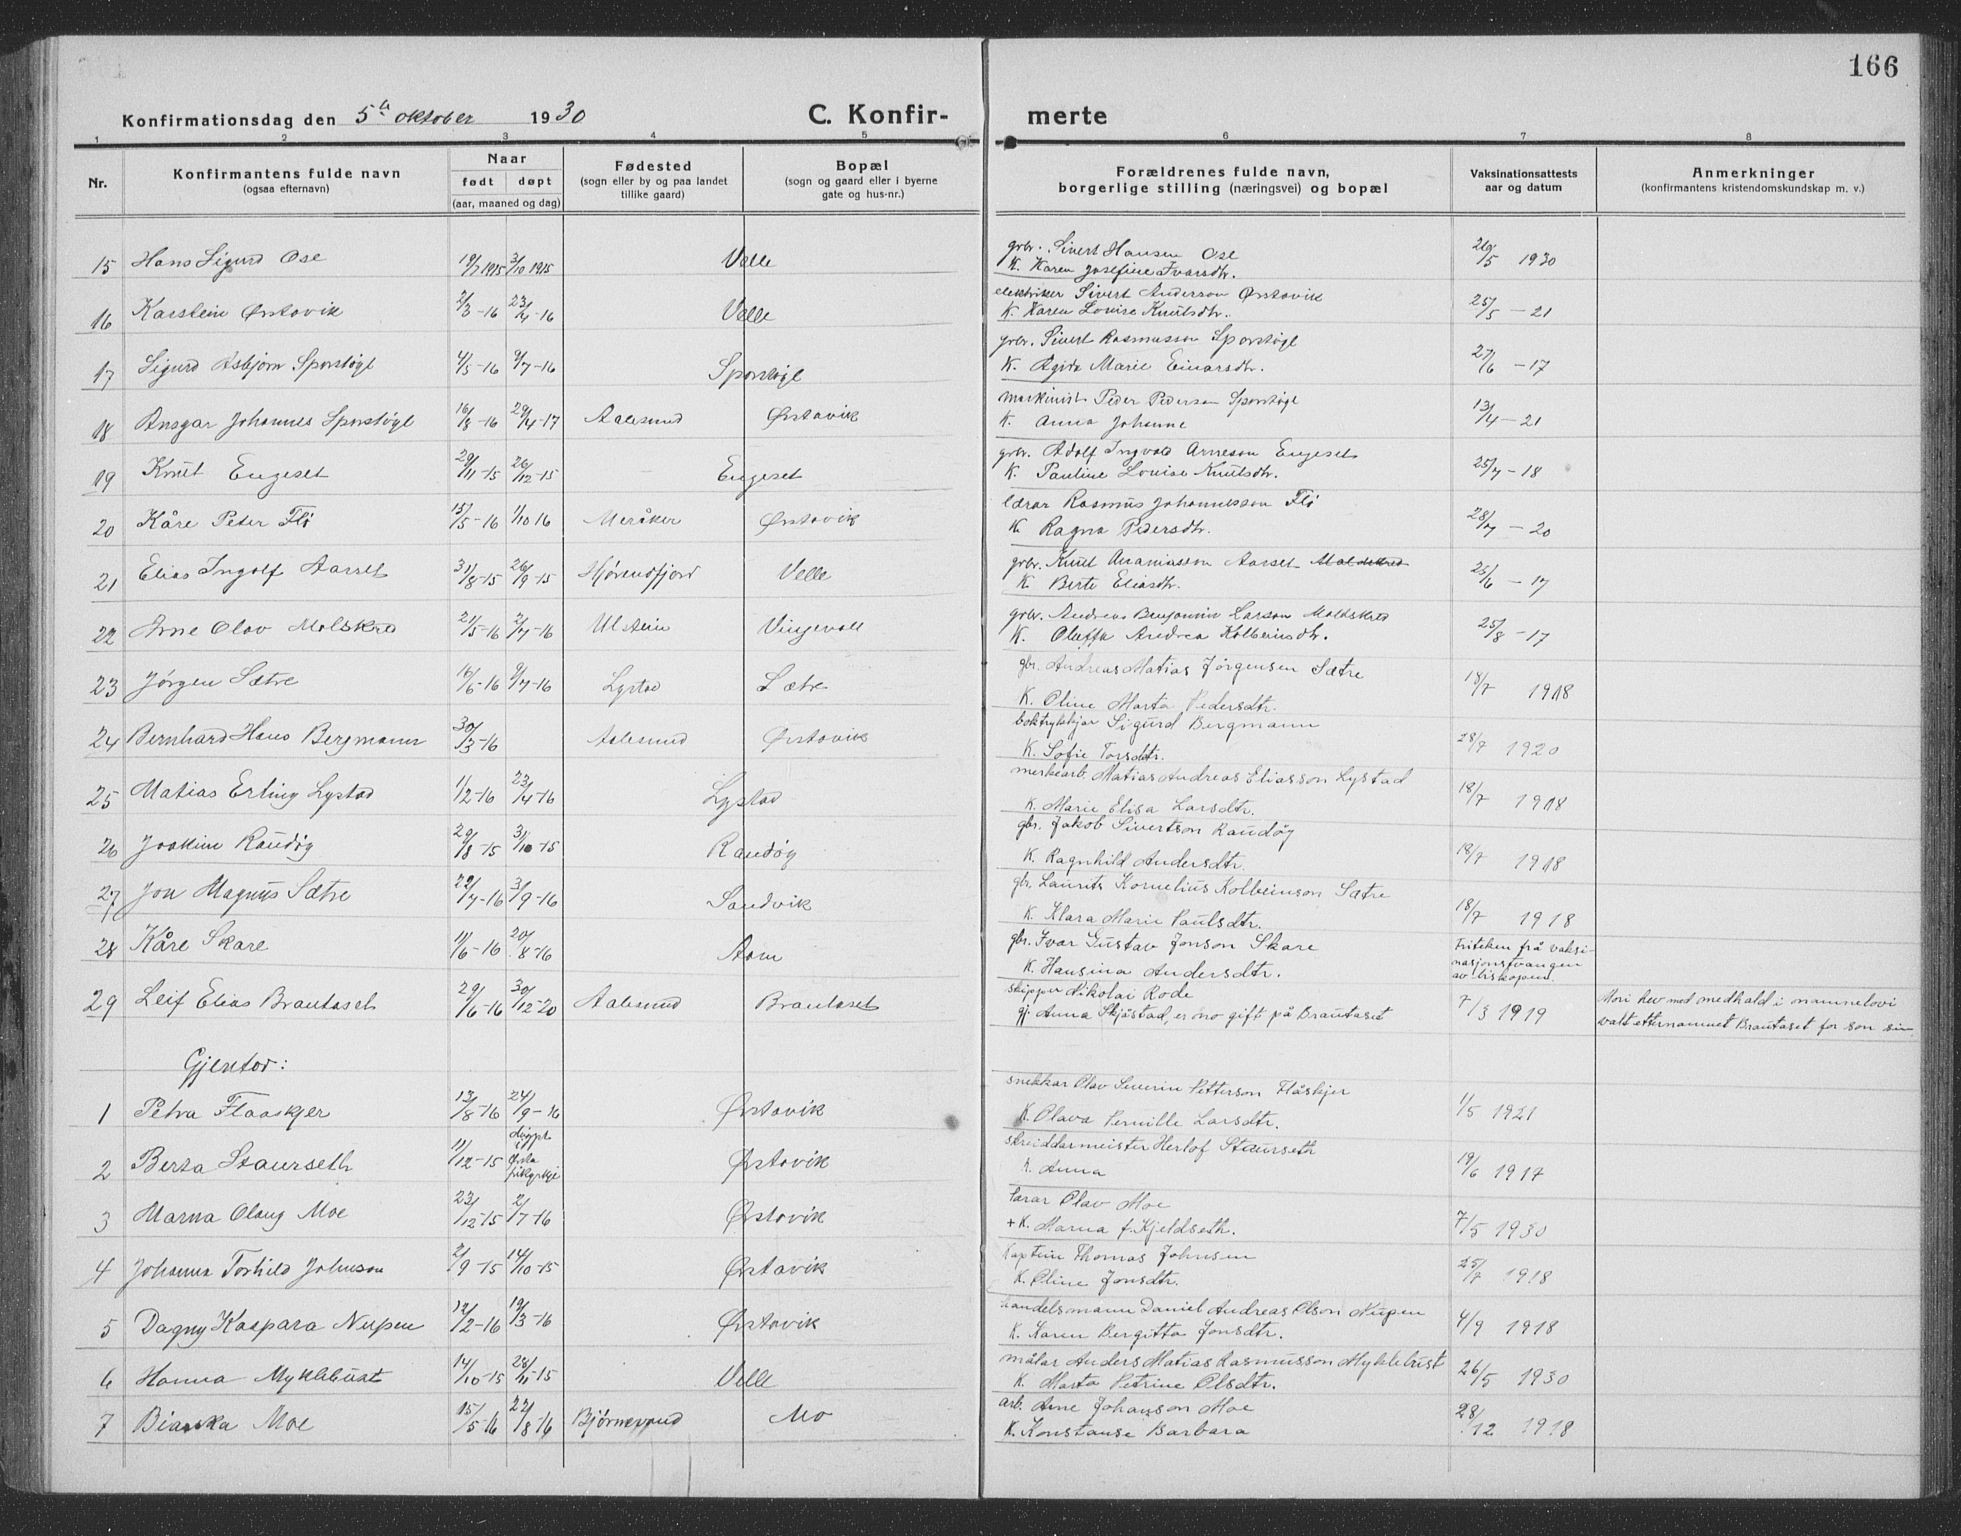 166
Konfirmationsdag den 5te oktober 1930 C. Konfir- merte
1 2 3 4 5 6 7 8
Nr. Konfirmantens fulde navn (ogsaa efternavn) Naar født døpt (aar, maaned og dag) Fødested (sogn eller by og paa landet tillike gaard) Bopæl (sogn og gaard eller i byerne gate og hus-nr.) Forældrenes fulde navn, borgerlige stilling (næringsvei) og bopæl Vaksinationsattests aar og datum Anmerkninger (konfirmantens kristendomskundskap m. v.)
15 Hans Sigurd Ose 19/7 1915 3/10 1915 Velle grbr. Sivert Hansen Ose 26/5 1930
K. Karen Josefine Ivarsdtr.
16 Karstein Ørstavik 2/3-16 23/4-16 Velle elektriker Sivert Anderson Ørstavik 25/5 - 21
K. Karen Lovise Knutsdtr.
17 Sigurd Asbjørn Sporstøyl 4/5-16 9/7-16 Sporstøyl grbr. Sivert Rasmusson Sporstøyl 27/6 - 17
K. Agida Marie Einarsdtr.
18 Ansgar Johannes Sporstøyl 16/8-16 29/4-17 Aalesund Ørstavik maskinist Peder Pederson Sporstøyl 13/4 - 21
K. Anna Johanne
19 Knut Engeset 29/11-15 26/12-15 Engeset grbr. Adolf Ingvald Arneson Engeset 25/7 - 18
K. Pauline Lovise Knutsdtr.
20 Kåre Peter Flø 15/5-16 1/10 16 Meråker Ørstavik lærar Rasmus Johannesson Flø 28/7 - 20
K. Ragna Pedersdtr.
21 Elias Ingolf Aarset 31/8-15 26/9-15 Hjørendfjord Velle grbr. Knut Ananiasson Aarset 25/6 - 17
K. Berte Eliasdtr.
22 Arne Olav Molskred 21/5-16 2/7-16 Ulstein Vingevoll grbr. Andreas Benjamin Larson Moldskred 25/8 - 17
K. Oluffa Andrea Kolbeinsdtr.
23 Jørgen Sætre 16/6-16 9/7-16 Lystad Sætre gbr. Andreas Matias Jørgensen Sætre 18/7 1918
K. Oline Marta Pedersdtr.
24 Bernhard Hans Bergmann 30/3-16 Aalesund Ørstavik boktrykkjar Sigurd Bergmann 28/7 1920
K. Sofie Torsdtr.
25 Matias Erling Lystad 1/2-16 23/4-16 Lystad merkearb. Matias Andreas Eliasson Lystad 18/7 1918
K. Marie Elisa Larsdtr.
26 Joakim Raudøy 29/8-15 3/10-15 Raudøy gbr. Jakob Sivertson Raudøy 18/7 1918
K. Ragnhild Andersdtr.
27 Jon Magnus Sætre 22/7-16 3/9-16 Sandvik gbr. Laurits Kornelius Kolbeinson Sætre 18/7 1918
K. Klara Marie Paulsdtr.
28 Kåre Skare 11/6-16 20/8-16 Aam gbr. Ivar Gustav Jonson Skare Friteken frå vaksi-
K. Hansina Andersdtr. nasjonstvangen
av biskopen
29 Leif Elias Brautaset 29/6-16 30/12-20 Aalesund Brautaset skipper Nikolai Rode 7/3 1919 Mori hev med medhald i namnelovi
gj. Anna Skjåstad, er no gift på Brautaset valt etternamnet Brautaset for son sin
Gjentor:
1 Petra Flaaskjer 13/8-16 24/9-16 Ørstavik snekkar Olav Severin Petterson Flåskjer 1/5 1921
K. Olava Pernille Larsdtr.
2 Berta Staurseth 11/12-15 døypt i Ørsta Ørstavik skreddarmeister Herlof Staurseth 19/6 1917
K. Anna
3 Marna Olaug Moe 23/12-15 2/7-16 Ørstavik lærar Olav Moe 7/5 1930
+ K. Marna f. Kjeldseth.
4 Johanna Torhild Johnson 2/9-15 14/10-15 Ørstavik Kaptein Thomas Johnsen 25/7 1918
K. Oline Jonsdtr.
5 Dagny Kaspara Nupen 12/2-16 19/3-16 Ørstavik handelsmann Daniel Andreas Olson Nupen 4/9 1918
K. Karen Bergitta Jonsdtr.
6 Hanna Myklebust 14/10-15 28/11-15 Velle målar Anders Matias Rasmusson Myklebust 26/5 1930
K. Marta Petrine Olsdtr.
7 Bianka Moe 15/5-16 27/8-16 Mo arb. Arne Johanson Moe 28/12 1918
K. Konstanse Barbara